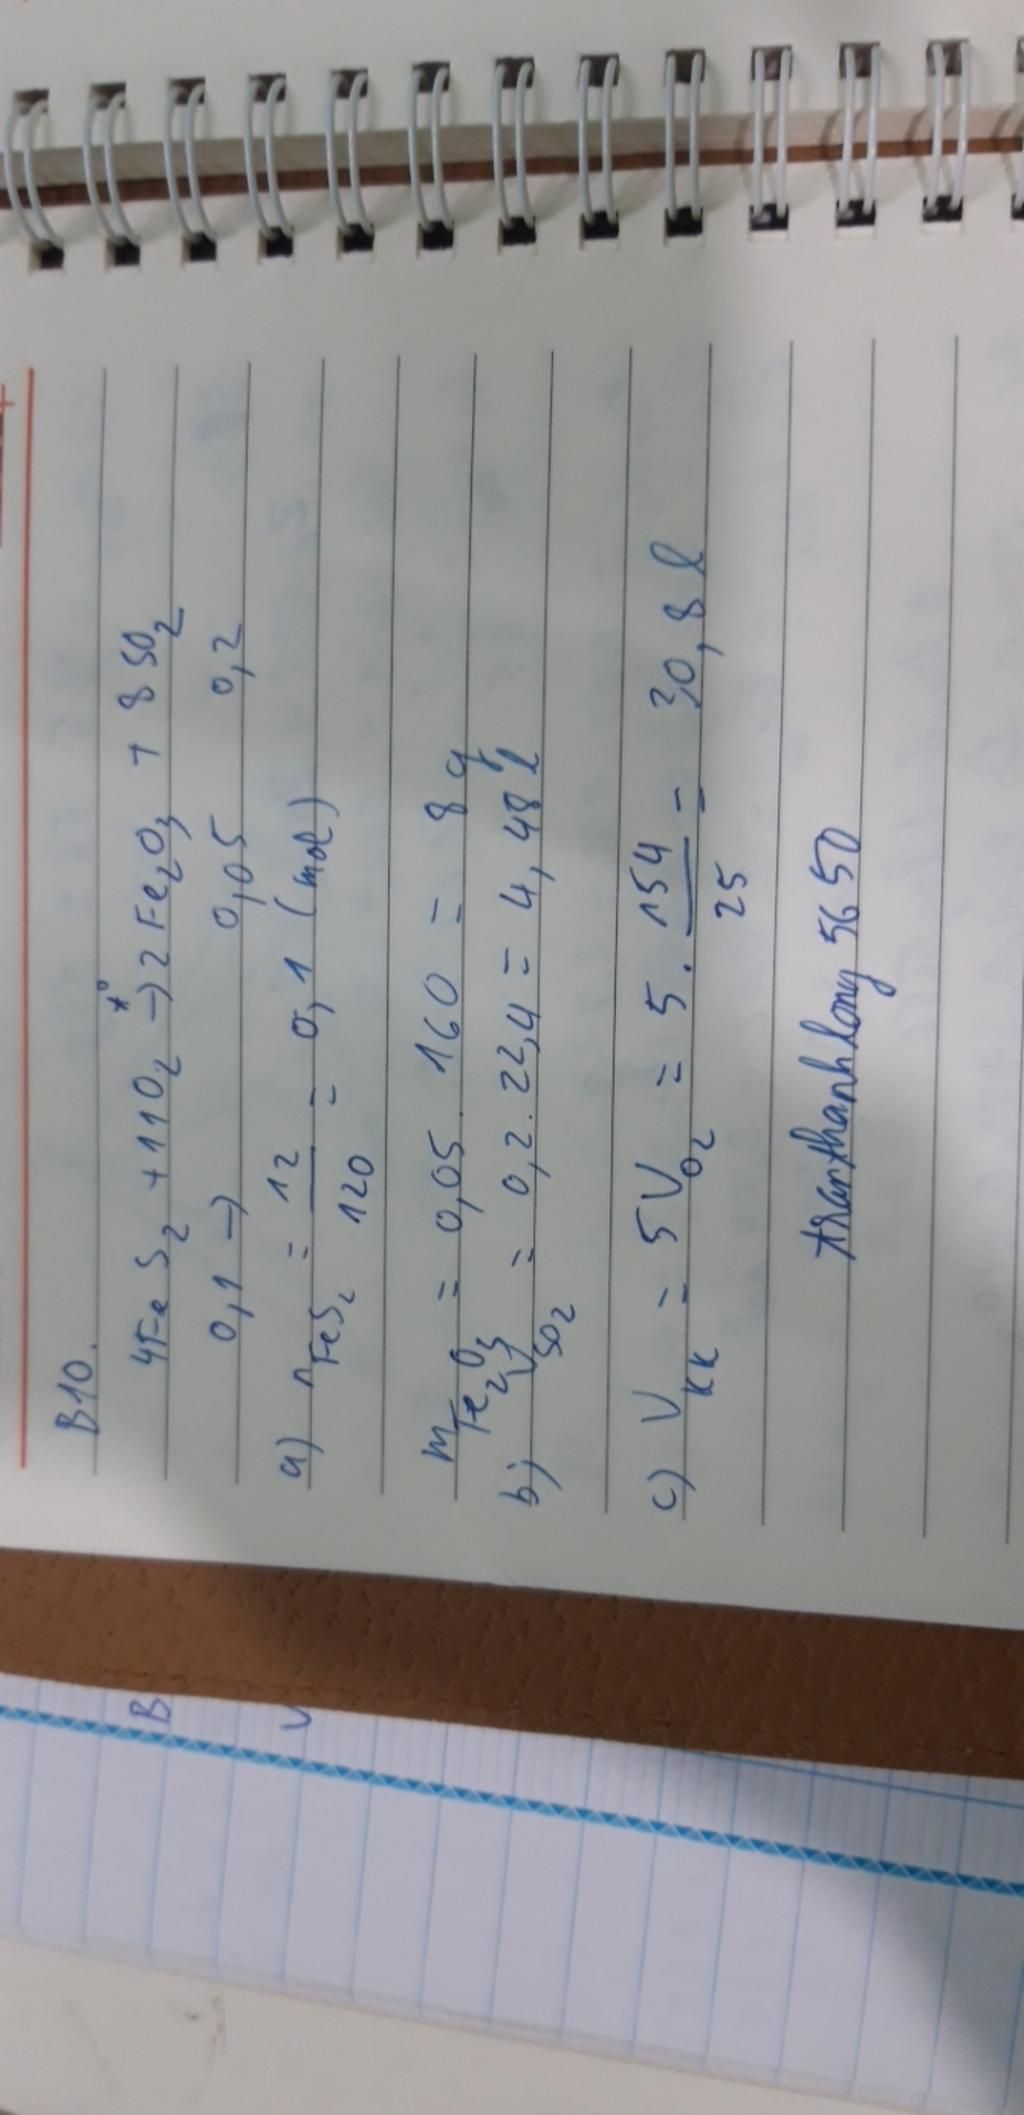 B10.
4FeS2 + 11O2 t°→ 2Fe2O3 + 8SO2
0,1 → 0,05 0,2
a) nFeS2 = 12/120 = 0,1 (mol)
mFe2O3 = 0,05.160 = 8g
b) VSO2 = 0,2.22,4 = 4,48l
c) Vkk = 5VO2 = 5.154/25 = 30,8l
tranthanhlong 5650
B
V